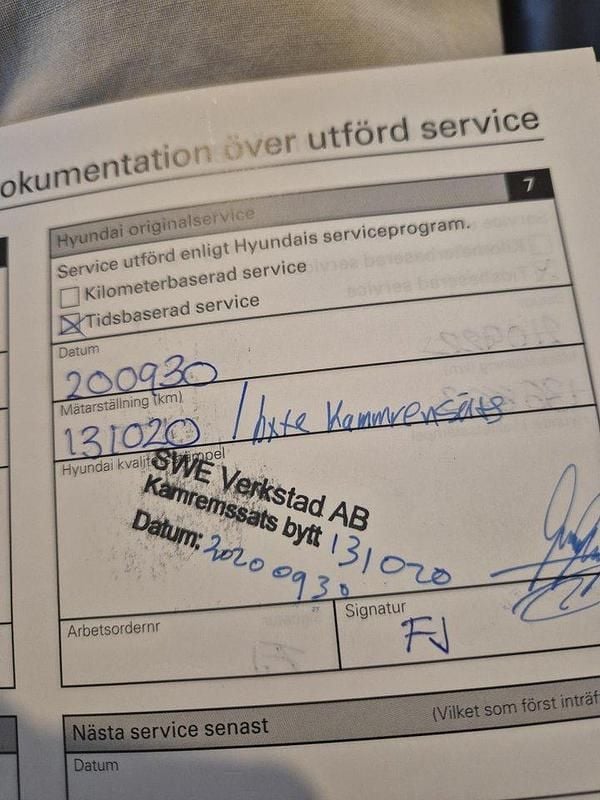 okumentation över utförd service
7
Hyundai originalservice
Service utförd enligt Hyundais serviceprogram.
Kilometerbaserad service
Tidsbaserad service
Datum
200930
Mätarställning (km)
131020 / byte kammrensats
Hyundai kvalitetsstämpel
SWE Verkstad AB
Kamremssats bytt 131020
Datum: 20200930
Arbetsordernr
Signatur
FJ
Nästa service senast
(Vilket som först inträff
Datum